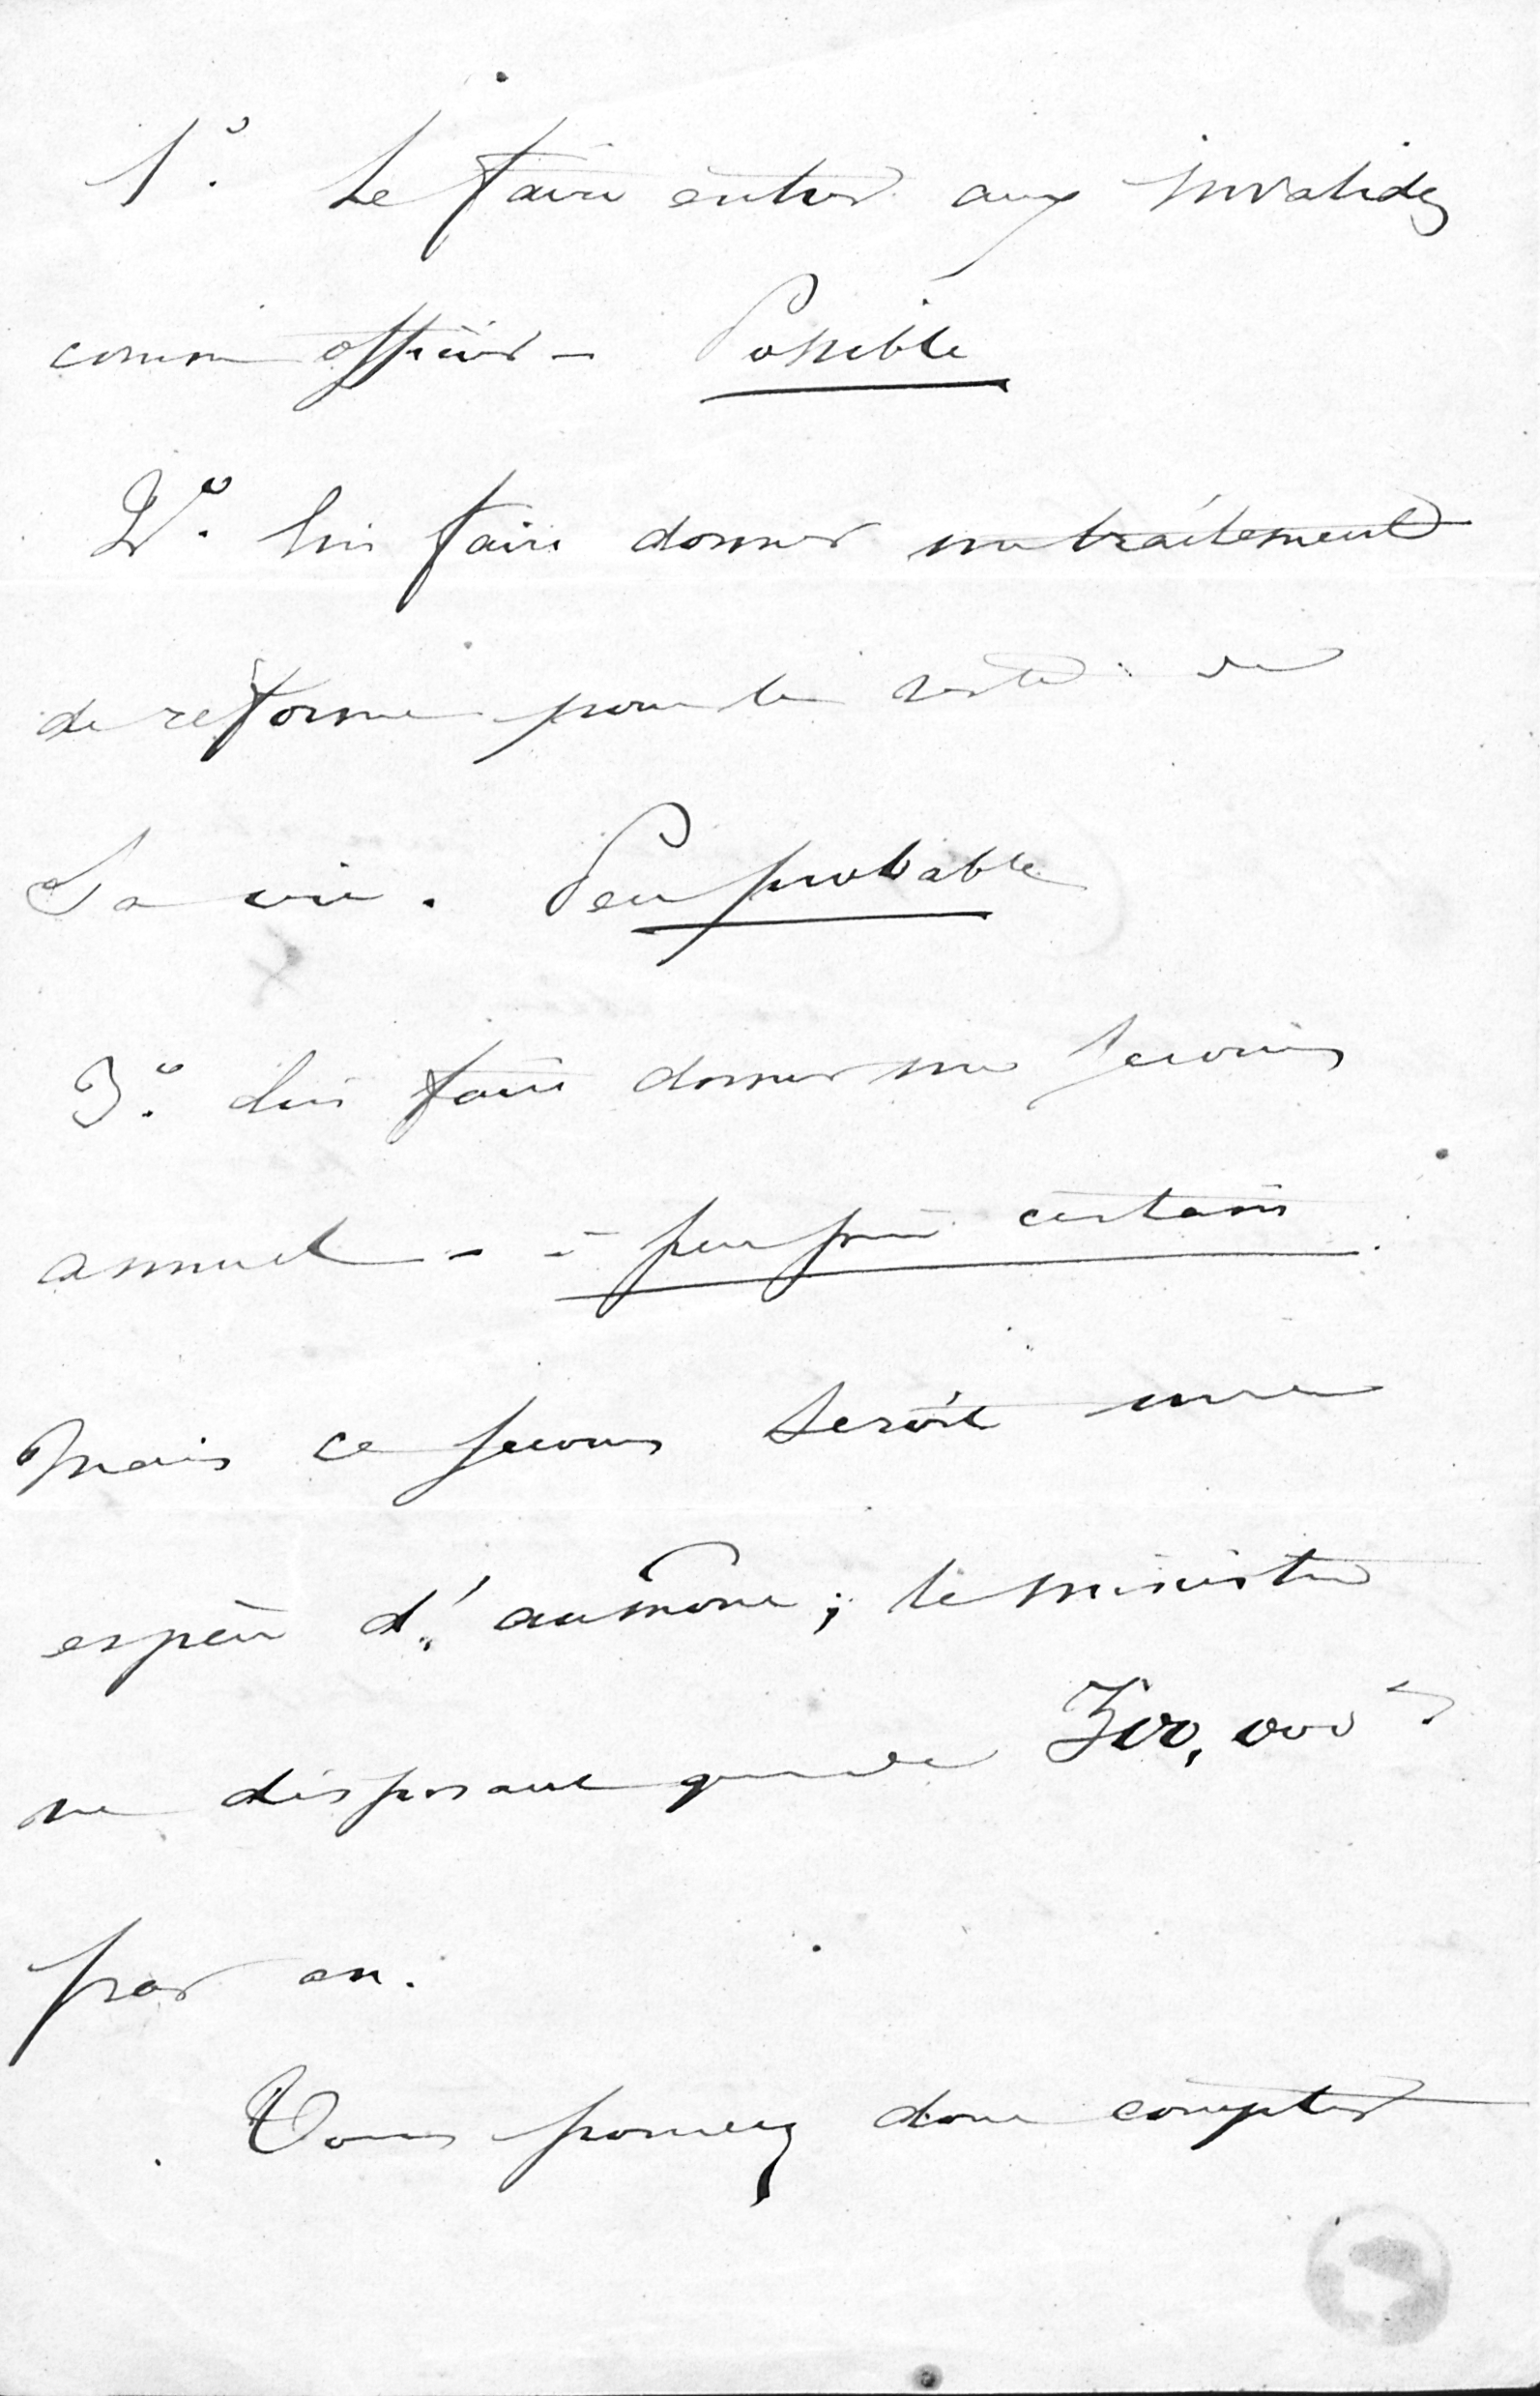 1º. Le faire entrer aux invalides
comme officier – Possible
2º. lui faire donner un traitement
de reforme pour le reste de
Sa vie. Peu probable
3º. lui faire donner un secours
annuel – à peu près certain.
Mais ce secours seroit une
espèce d'aumône ; le ministre
ne disposant que de 300,000 f
par an.
Vous pouvez donc compter